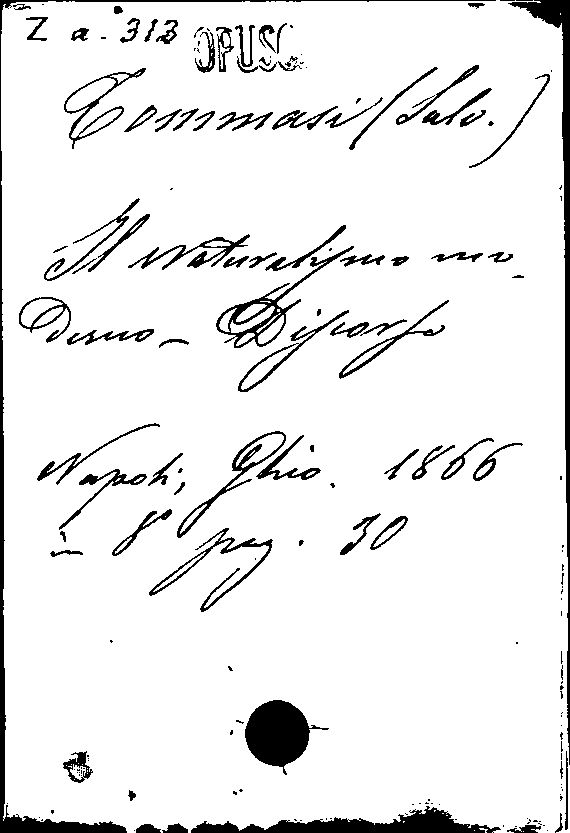 Z a. 313 OPUSC.
Tommasi (Salv.)
Il Naturalismo mo-
derno – Discorso
Napoli, Ghio. 1866
in 8° pag. 30